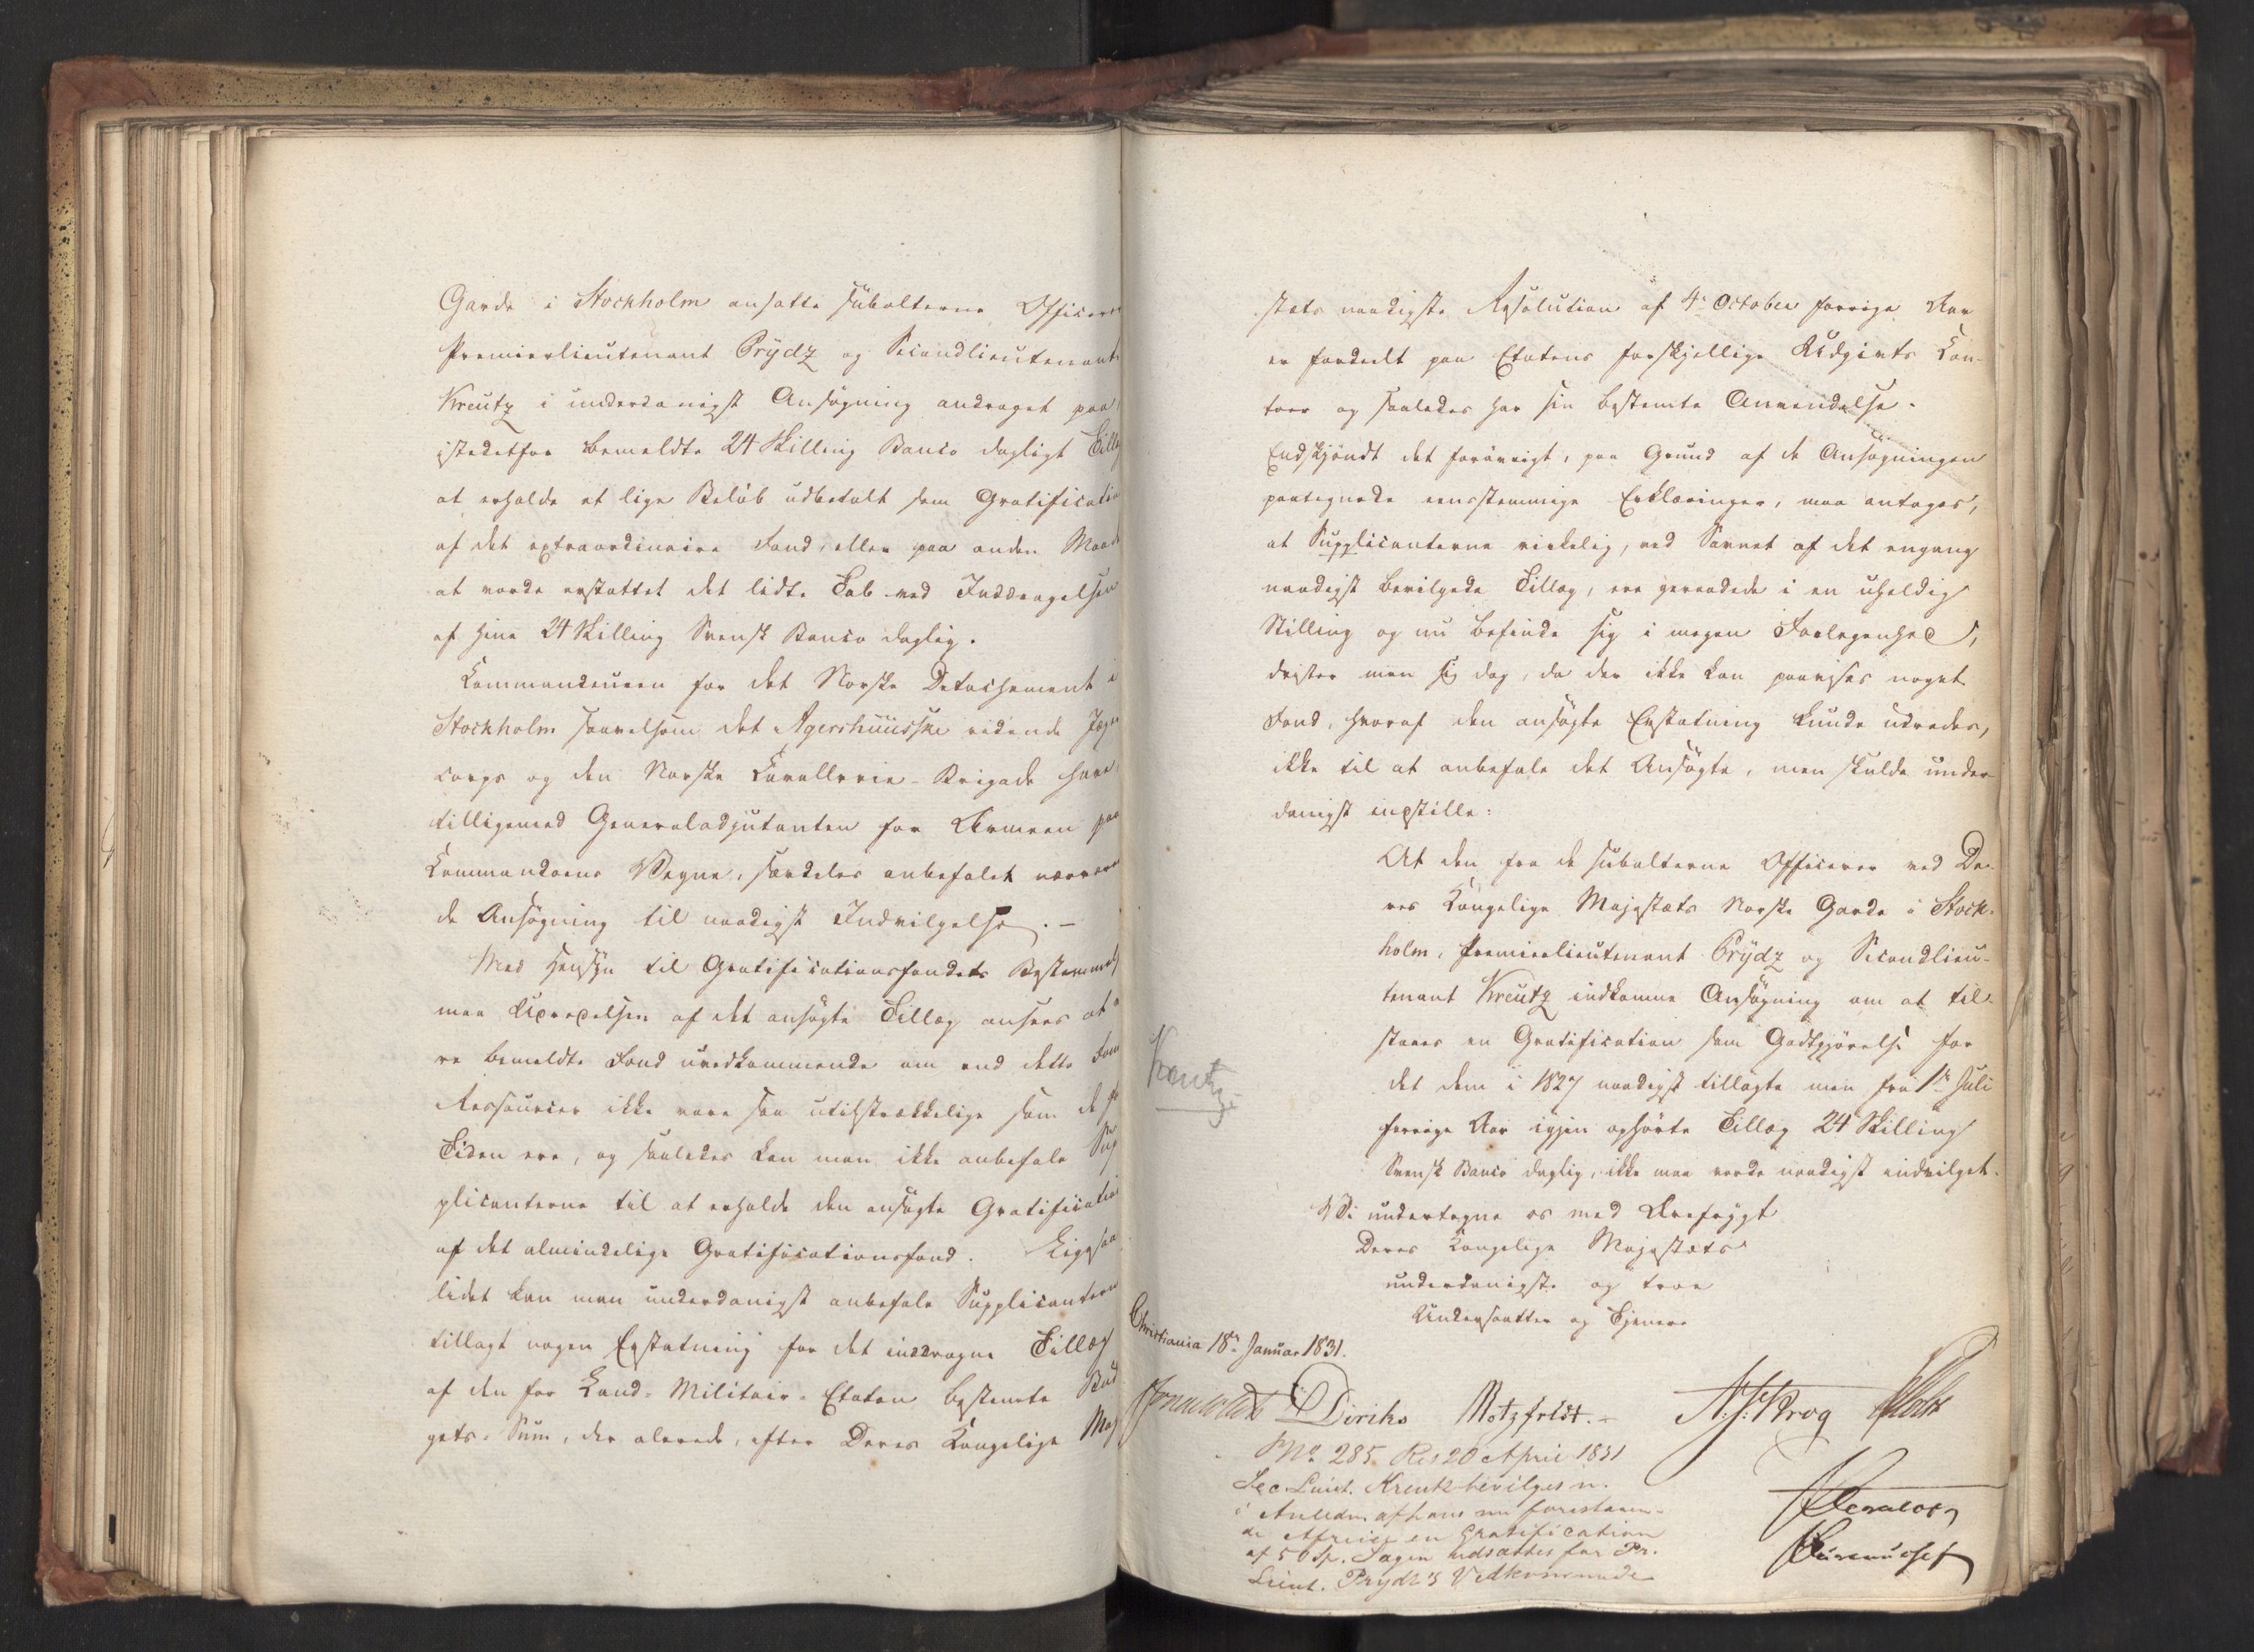 Garde i Stockholm ansatte subalterne Officerer
Premierlieutenant Prÿdz og Secondlieutenant
Kreutz i underdanigst Ansøgning andraget paa
istedetfor bemeldte 24 Skilling Banco dagligt Tillæg
at erholde et lige Beløb udbetalt som Gratification
af det extraordinaire Fond, eller paa anden Maade
at vorde erstattet det lidte Tab ved Inddragelsen
af hine 24 Skilling Svensk Banco daglig.
Commandeuren for det Norske Detachement i
Stockholm saavelsom det Agershuusske ridende Jæger
corps og den Norske Cavallerie-Brigade have
tilligemed Generaladjutanten for Armeen paa
Commandoens Vegne, særdeles anbefalet nærværen
de Ansøgning til naadigst Indvilgelse. -
Med Hensyn til Gratificationsfondets Bestemmelse
maa Udredelsen af det ansøgte Tillæg ansees at væ
re bemeldte Fond uvedkommende om end dette Fonds
Ressourcer ikke vare saa utilstrækkelige som de for
Tiden ere, og saaledes kan man ikke anbefale Sup
plicanterne til at erholde den ansøgte Gratification
af det almindelige Gratificationsfond. Ligesaa
lidet kan man underdanigst anbefale Supplicanterne
tillagt nogen Erstatning for det inddragne Tillæg
af den for Land-Militair-Etaten bestemte Bud
gets-Sum, der allerede, efter Deres Kongelige Maje
stæts naadigste Resolution af 4 October forrige Aar
er fordeelt paa Etatens forskjellige Udgivts Con-
toer og saaledes har sin bestemte Anvendelse.
Endskjøndt det forøvrigt, paa Grund af de Ansøgningen
paategnede eensstemmige Erklæringer, maa antages,
at Supplicanterne virkelig, ved Savnet af det engang
naadigst bevilgede Tillæg, ere geraadede i en uheldig
Stilling og nu befinde sig i megen Forlegenhed,
drister man sig dog, da der ikke kan paavises noget
Fond, hvoraf den ansøgte Erstatning kunde udredes,
ikke til at anbefale det Ansøgte, men skulde under-
danigst indstille:
At den fra de subalterne Officerer ved De-
res Kongelige Majestæts Norske Garde i Stock-
holm, Premierlieutenant Prÿdz og Secondlieu-
tenant Kreutz indkomne Ansøgning om at til-
staaes en Gratification som Godtgjørelse for
det dem i 1827 naadigst tillagte men fra 1ste Juli
forrige Aar igjen ophørte Tillæg 24 Skilling
Svensk Banco daglig, ikke maa vorde naadigst indvilget.
Kreutz
Vi undertegne os med Ærefrygt
Deres Kongelige Majestæts
underdanigste og troe
Undersaatter og Tjenere
Christiania 18de Januar 1831.
Diriks Motzfeldt. N. J. Krog
No 285. Res 20 April 1831
Sec. Lieut. Kreutz bevilges n.
i Anledn. af hans nu forestaaen-
de Afreise en Gratification
af 50 Sp. Sagen udsættes for Pr.
Lieut. Prydz's Vedkommende